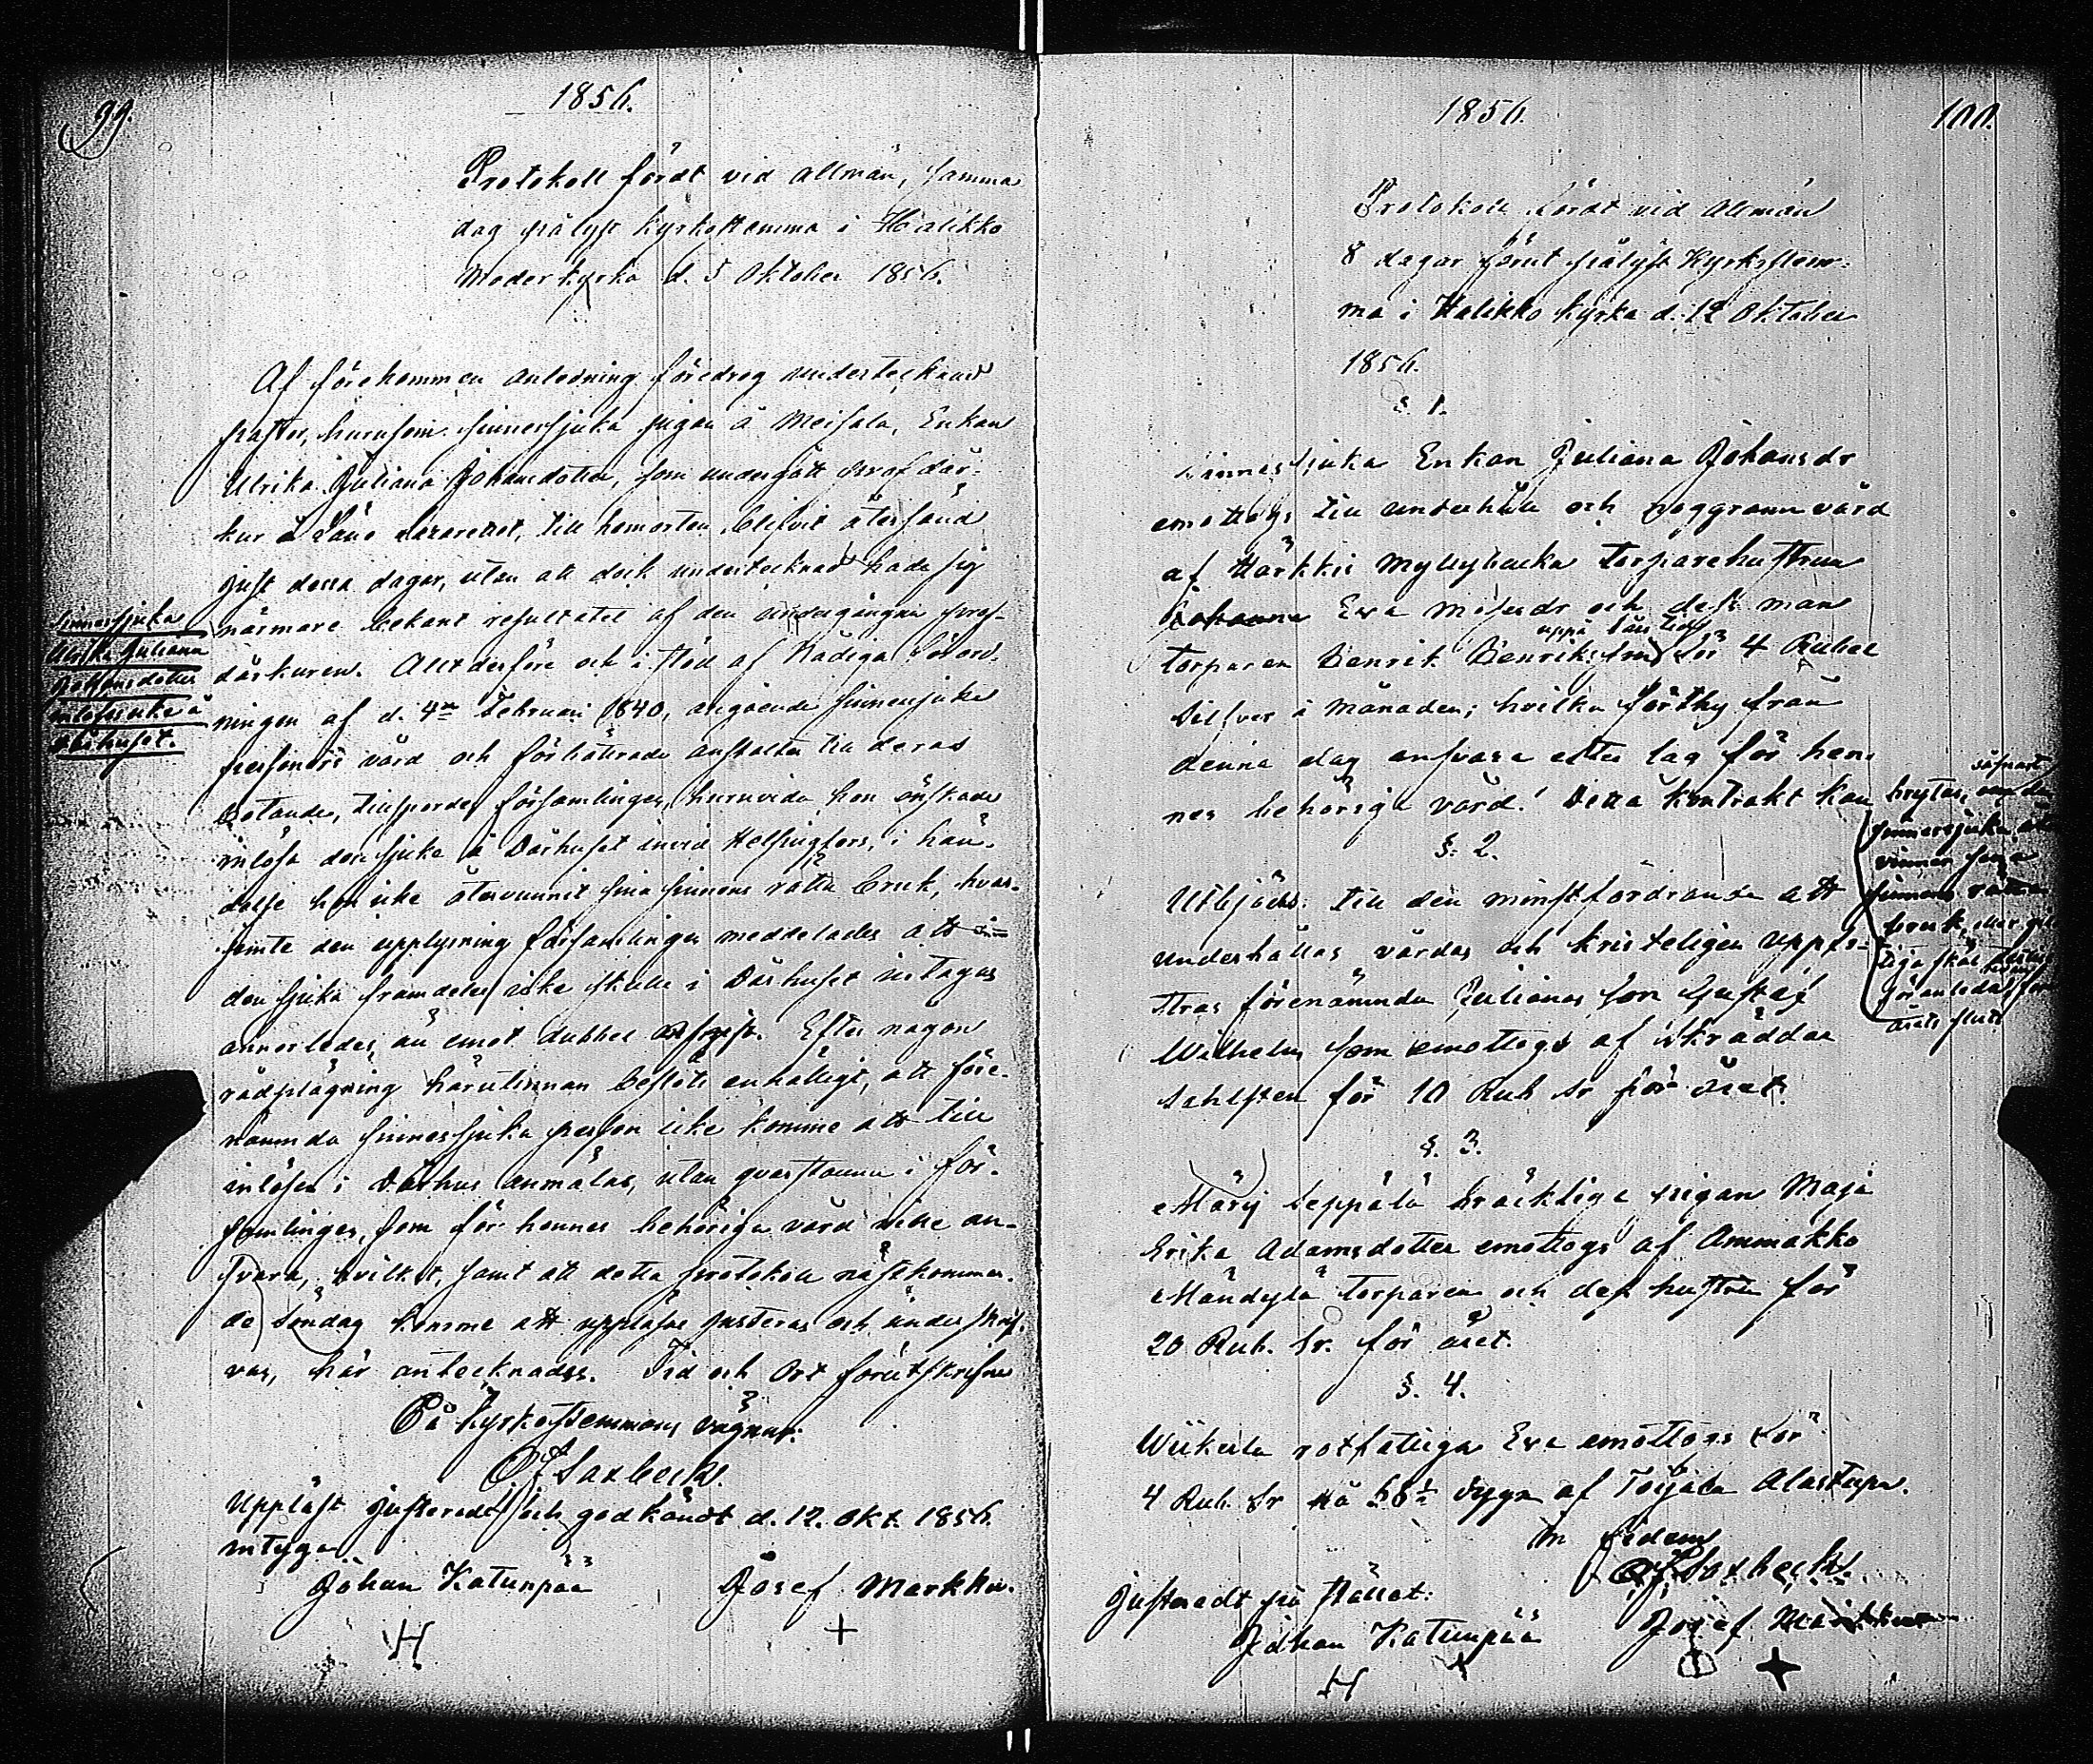 99.
1856.
Protokoll fördt vid allmän, samma
dag pålyst kyrkostemma i Halikko
Moderkyrka d. 5 Oktober 1856.
Af förekommen anledning föredrog undertecknad
pastor, hurusom sinnessjuka pigan å Meisala, Enkan
Ulrika Juliana Johansdotter, som undergått prof dår-
kur å Läns Lazarettet, till hemorten blifvit återsänd
just dessa dagar, utan att dock undertecknad hade sig
närmare bekant resultatet af den undergångna prof-
dårkuren. Allt derföre och i stöd af Nådiga Förord-
ningen af d. 4de Februari 1840, angående sinnessjuke
personers vård och förbättrade anstalter till deras
botande, tillspordes församlingen, huruvida hon önskade
inlösa den sjuka å Dårhuset invid Helsingfors, i hän-
delse hon icke återvunnit sina sinnens rätta bruk, hvar-
jemte den upplysning församlingen meddelades att
den sjuka framdeles icke skulle i Dårhuset intagas
annorledes än emot dubbel afgift. Efter någon
rådplägning härutinnan beslöts enhälligt, att före-
nämnda sinnessjuka person icke komme att till
inlösen i Dårhus anmälas, utan qvarstanna i för-
samlingen, som för hennes behöriga vård ville an-
svara, hvilket, samt att detta protokoll nästkomman-
de Söndag komme att uppläsas justeras och underskrif-
vas, här antecknades. Tid och Ort förutskrifne
På Kyrkostemmans vägnar:
Saxbeck.
Uppläst justeradt och godkändt d. 12. Okt. 1856.
intyga
Johan Katunpää Josef Markku.
H +
Sinnessjuka
Ulrika Juliana
Johansdotter
inlöses icke å
dårhuset.
1856.
100.
Protokoll fördt vid allmän
8 dagar förut pålyst Kyrkostem-
ma i Halikko kyrka d. 12 Oktober
1856.
§. 1.
Sinnessjuka Enkan Juliana Johansdr
emottogs till underhåll och noggrann vård
af Märkki Myllybacka torparehustrun
Johanna Eva Mosesdr och dess man
uppå års tid
torparen Henrik Henriksson för 4 Rubel
Silfver i månaden; hvilka förthy från
denna dag ansvara efter lag för hen-
nes behöriga vård. Detta kontrakt kan
såframt
brytas, om den
sinnessjuka åter
vinner sina
sinnens rätta
bruk, eller gil-
tiga skäl dertill
föranledas före
årets slut
§. 2.
Utbjöds till den minstfordrande att
underhållas vårdas och kristeligen uppfo-
stras förenämnda Julianas son Gustaf
Wilhelm som emottogs af skräddar
Sahlsten för 10 Rub Sr för året.
§. 3.
Märy Leppälä bräckliga pigan Maja
Erika Adamsdotter emottogs af Ammakko
Mändylä torparen och dess hustru för
20 Rub. Sr. för året.
§. 4.
Wiikerla rotfattiga Eva emottogs för
4 Rub. Sr af Toijala Alastupa.
In fidem
Saxbeck.
Justeradt på stället:
Johan Katunpää Josef Markku
H +